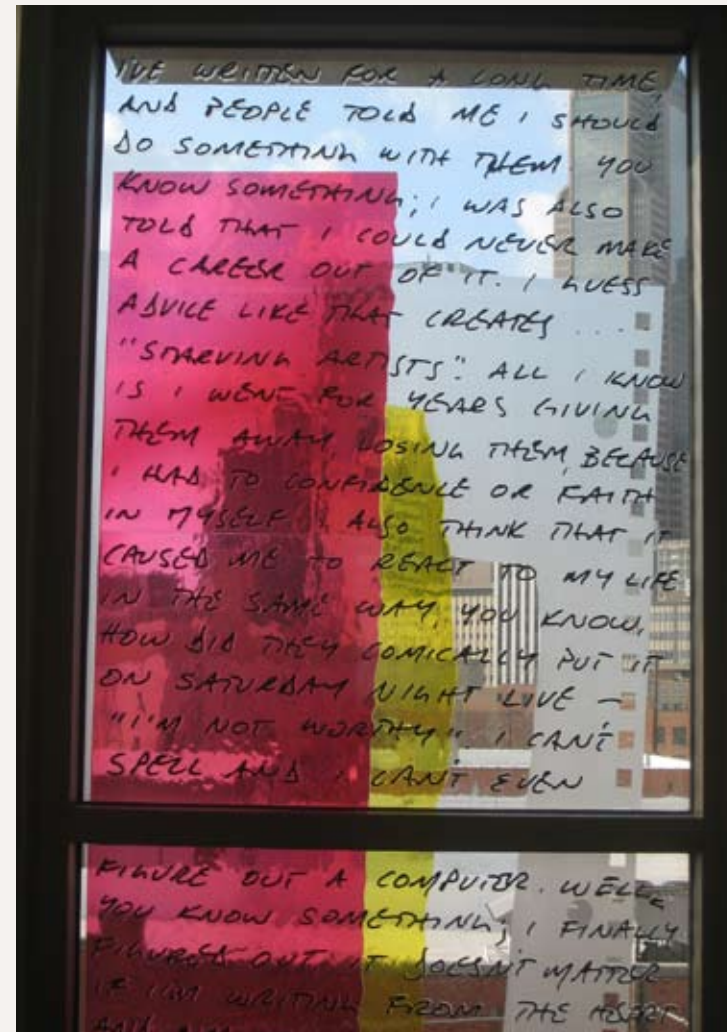 I'VE WRITTEN FOR A LONG TIME,
AND PEOPLE TOLD ME I SHOULD
DO SOMETHING WITH THEM. YOU
KNOW SOMETHING; I WAS ALSO
TOLD THAT I COULD NEVER MAKE
A CAREER OUT OF IT. I GUESS
ADVICE LIKE THAT CREATES ...
"STARVING ARTISTS". ALL I KNOW
IS I WENT FOR YEARS GIVING
THEM AWAY, LOSING THEM, BECAUSE
I HAD TO CONFIDENCE OR FAITH
IN MYSELF. I ALSO THINK THAT IT
CAUSED ME TO REACT TO MY LIFE
IN THE SAME WAY, YOU KNOW,
HOW DID THEY COMICALLY PUT IT
ON SATURDAY NIGHT LIVE –
"I'M NOT WORTHY". I CAN'T
SPELL AND I CAN'T EVEN
FIGURE OUT A COMPUTER. WELL,
YOU KNOW SOMETHING; I FINALLY
FIGURED OUT IT DOESN'T MATTER
IF I'M WRITING FROM THE HEART
AND